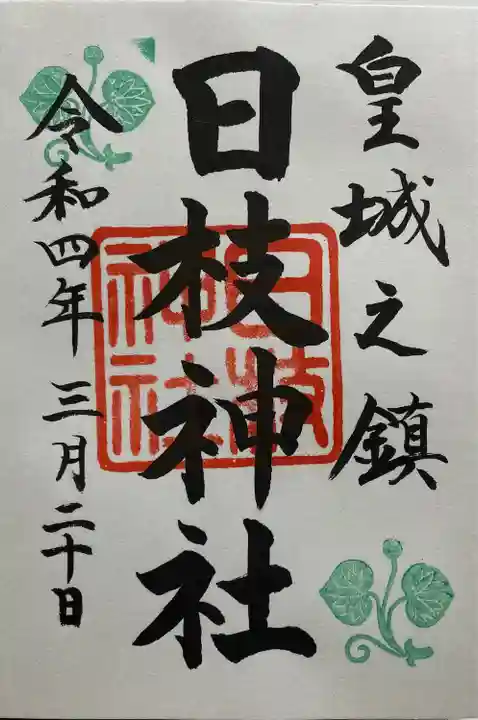 皇城之鎮
日枝神社
日枝神社
令和四年三月二十日